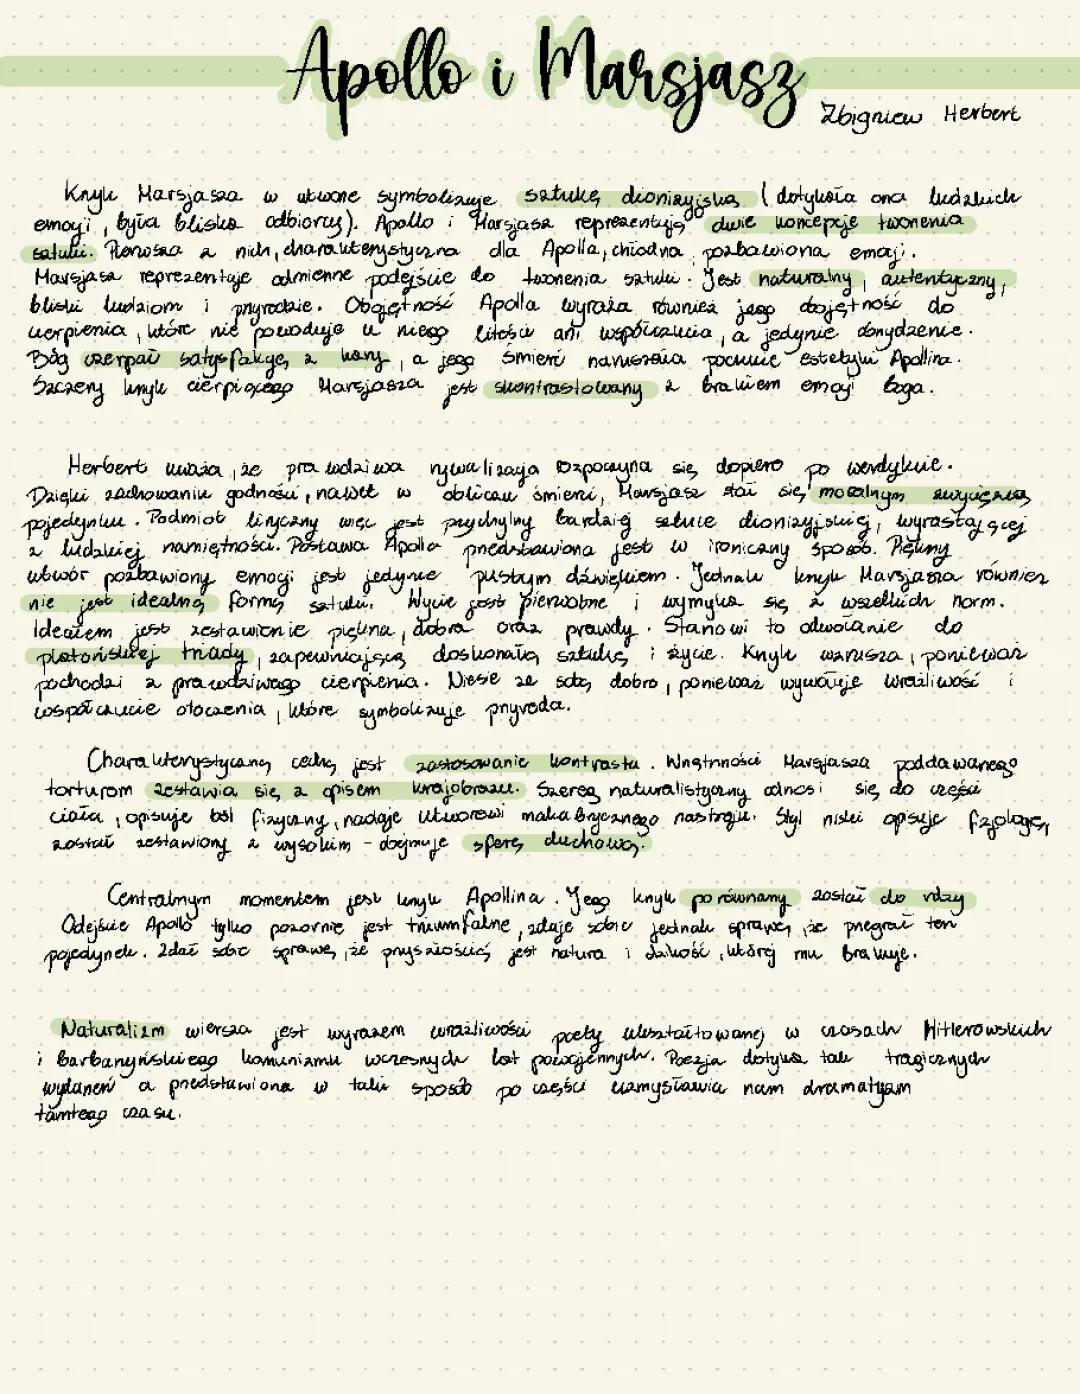 Apollo i Marsjasz
Zbigniew Herbert
Krzyk Marsjasza w utworze symbolizuje sztukę dionizyjską (dotykała ona ludzkich
emocji, była bliska odbiorcy). Apollo i Marsjasz reprezentują dwie koncepcje tworzenia
sztuki. Pierwsza z nich, charakterystyczna dla Apolla, chłodna, pozbawiona emocji.
Marsjasz reprezentuje odmienne podejście do tworzenia sztuki. Jest naturalny, autentyczny,
bliski ludziom i przyrodzie. Obojętność Apolla wyraża również jego obojętność do
cierpienia, które nie powoduje u niego litości ani współczucia, a jedynie obrzydzenie.
Bóg czerpał satysfakcję z kary, a jego śmierć naruszała poczucie estetyki Apollina.
Szczery krzyk cierpiącego Marsjasza jest skontrastowany z brakiem emocji boga.
Herbert uważa, że prawdziwa rywalizacja rozpoczyna się dopiero po werdykcie.
Dzięki zachowaniu godności, nawet w obliczu śmierci, Marsjasz stał się moralnym zwycięzcą
pojedynku. Podmiot liryczny więc jest przychylny bardziej sztuce dionizyjskiej, wyrastającej
z ludzkiej namiętności. Postawa Apolla przedstawiona jest w ironiczny sposób. Piękny
utwór pozbawiony emocji jest jedynie pustym dźwiękiem. Jednak krzyk Marsjasza również
nie jest idealną formą sztuki. Wycie jest pierwotne i wymyka się z wszelkich norm.
Ideałem jest zestawienie piękna, dobra oraz prawdy. Stanowi to odwołanie do
platońskiej triady, zapewniającą doskonałą sztukę i życie. Krzyk wzrusza, ponieważ
pochodzi z prawdziwego cierpienia. Niesie ze sobą dobro, ponieważ wywołuje wrażliwość i
współczucie otoczenia, które symbolizuje przyroda.
Charakterystyczną cechą jest zastosowanie kontrastu. Wnętrzności Marsjasza poddawanego
torturom zestawia się z opisem krajobrazu. Szereg naturalistyczny odnosi się do części
ciała, opisuje ból fizyczny, nadaje utworowi makabrycznego nastroju. Styl niski opisuje fizjologię,
został zestawiony z wysokim - dojmuje sferę duchową.
Centralnym momentem jest krzyk Apollina. Jego krzyk porównany został do rdzy
Odejście Apollo tylko pozornie jest triumfalne, zdaje sobie jednak sprawę, że przegrał ten
pojedynek. Zdał sobie sprawę, że przyszłością jest natura i dzikość, której mu brakuje.
Naturalizm wiersza jest wyrazem wrażliwości poety ukształtowanej w czasach Hitlerowskich
i barbarzyńskiego komunizmu wczesnych lat powojennych. Poezja dotyka tak tragicznych
wydarzeń a przedstawiona w taki sposób po części uzmysławia nam dramatyzm
tamtego czasu.